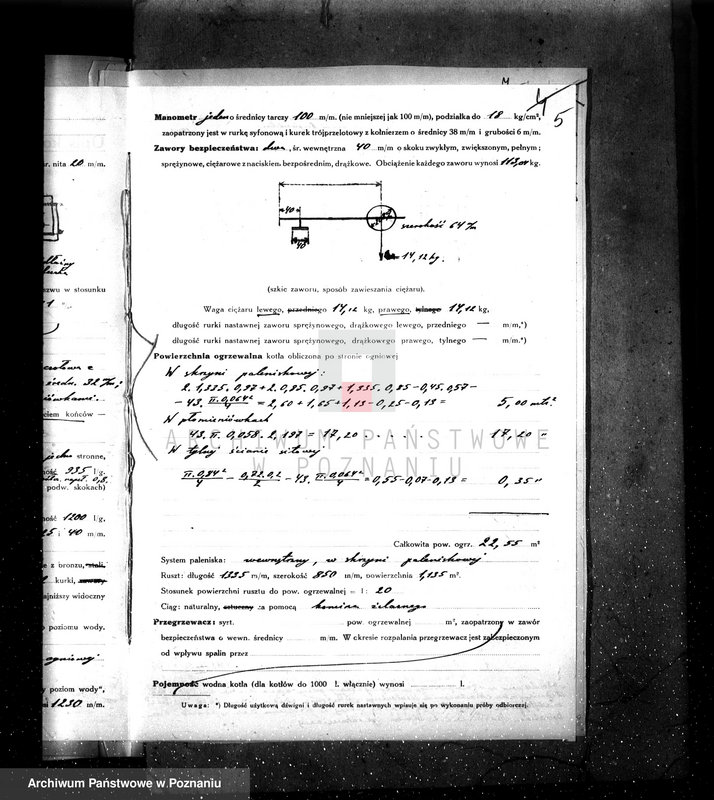 M
4
5
Manometr jeden o średnicy tarczy 100 m/m. (nie mniejszej jak 100 m/m), podziałka do 18 kg/cm²,
zaopatrzony jest w rurkę syfonową i kurek trójprzelotowy z kołnierzem o średnicy 38 m/m i grubości 6 m/m.
Zawory bezpieczeństwa: dwa, śr. wewnętrzna 40 m/m o skoku zwykłym, zwiększonym, pełnym;
sprężynowe, ciężarowe z naciskiem bezpośrednim, drążkowe. Obciążenie każdego zaworu wynosi 113,04 kg.
40
40
szerokość 64 m/m
14,12 kg.
(szkic zaworu, sposób zawieszania ciężaru).
Waga ciężaru lewego, przedniego 14,12 kg, prawego, tylnego 14,12 kg,
długość rurki nastawnej zaworu sprężynowego, drążkowego lewego, przedniego — m/m,*)
długość rurki nastawnej zaworu sprężynowego, drążkowego prawego, tylnego — m/m.*)
Powierzchnia ogrzewalna kotła obliczona po stronie ogniowej
W skrzyni paleniskowej:
2. 1,335. 0,97 + 2. 0,85. 0,97 + 1,335. 0,85 - 0,45. 0,57 -
- 43. π. 0,064² / 4 = 2,60 + 1,65 + 1,13 - 0,25 - 0,13 = 5,00 mtr.²
W płomieniówkach
43. π. 0,058. 2,197 = 17,20 . . . 17,20 "
W tylnej ścianie sitowej
π. 0,84² / 4 - 0,72. 0,2 / 2 - 43. π. 0,064² / 4 = 0,55 - 0,07 - 0,13 = 0,35 "
Całkowita pow. ogrz. 22,55 m²
System paleniska: wewnętrzny, w skrzyni paleniskowej
Ruszt: długość 1335 m/m, szerokość 850 m/m, powierzchnia 1,135 m².
Stosunek powierzchni rusztu do pow. ogrzewalnej = 1: 20
Ciąg: naturalny, sztuczny za pomocą komina żelaznego
Przegrzewacz: syst. pow. ogrzewalnej m², zaopatrzony w zawór
bezpieczeństwa o wewn. średnicy m/m. W okresie rozpalania przegrzewacz jest zabezpieczonym
od wpływu spalin przez
Pojemność wodna kotła (dla kotłów do 1000 l. włącznie) wynosi l.
Uwaga: *) Długość użytkową dźwigni i długość rurek nastawnych wpisuje się po wykonaniu próby odbiorczej.
r. nita 20 m/m.
szwu w stosunku
średn. 32 m/m;
ciem końców —
jedno stronne,
ność 935 l/g.
podw. skokach)
ność 1200 l/g,
25 i 40 m/m.
e z bronzu, stali,
kurki, zawory
ajniższy widoczny
o poziomu wody.
ogniowej
y poziom wody",
1230 m/m.
ARCHIWUM PAŃSTWOWE
W POZNANIU
Archiwum Państwowe w Poznaniu